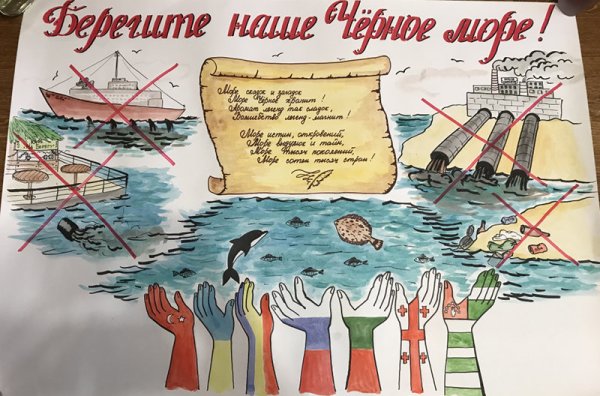 Берегите наше Чёрное море!
Море сказок и загадок
Море Чёрное хранит!
Аромат легенд так сладок,
Волшебство легенд - магнит!
Море истин, откровений,
Море выдумок и тайн,
Море тысяч поколений,
Море сотен тысяч стран!